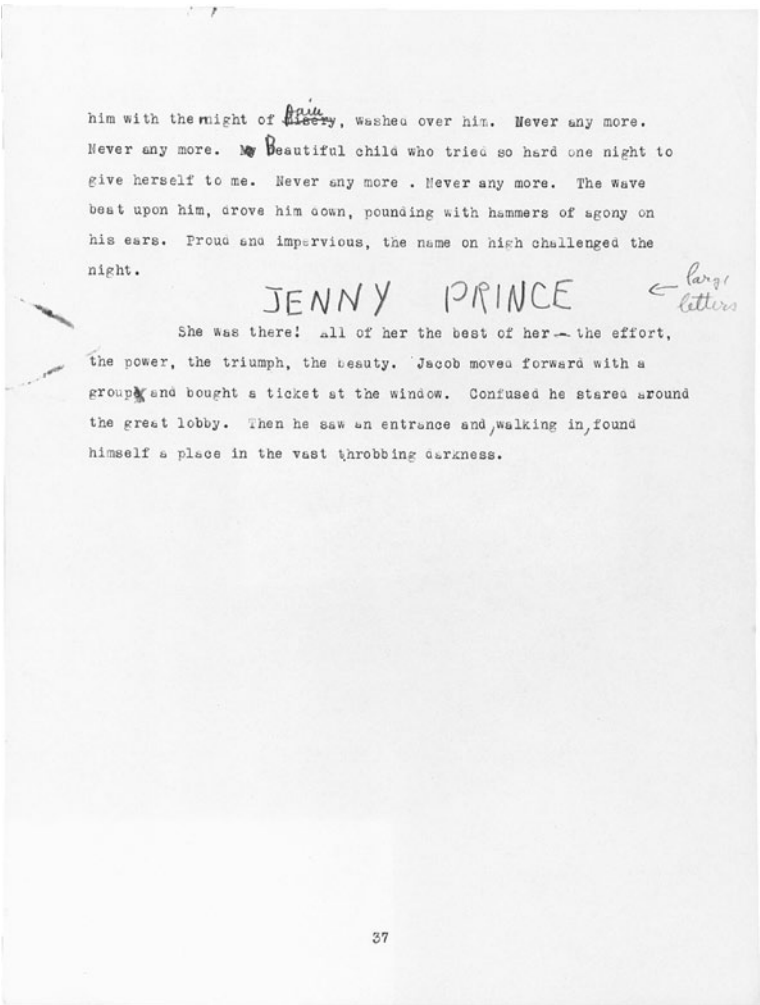 him with the might of misery pain, washed over him. Never any more.
Never any more. My Beautiful child who tried so hard one night to
give herself to me. Never any more . Never any more. The wave
beat upon him, drove him down, pounding with hammers of agony on
his ears. Proud and impervious, the name on high challenged the
night.
JENNY PRINCE ← large
letters
She was there! All of her the best of her — the effort,
the power, the triumph, the beauty. Jacob moved forward with a
group and bought a ticket at the window. Confused he stared around
the great lobby. Then he saw an entrance and, walking in, found
himself a place in the vast throbbing darkness.
37